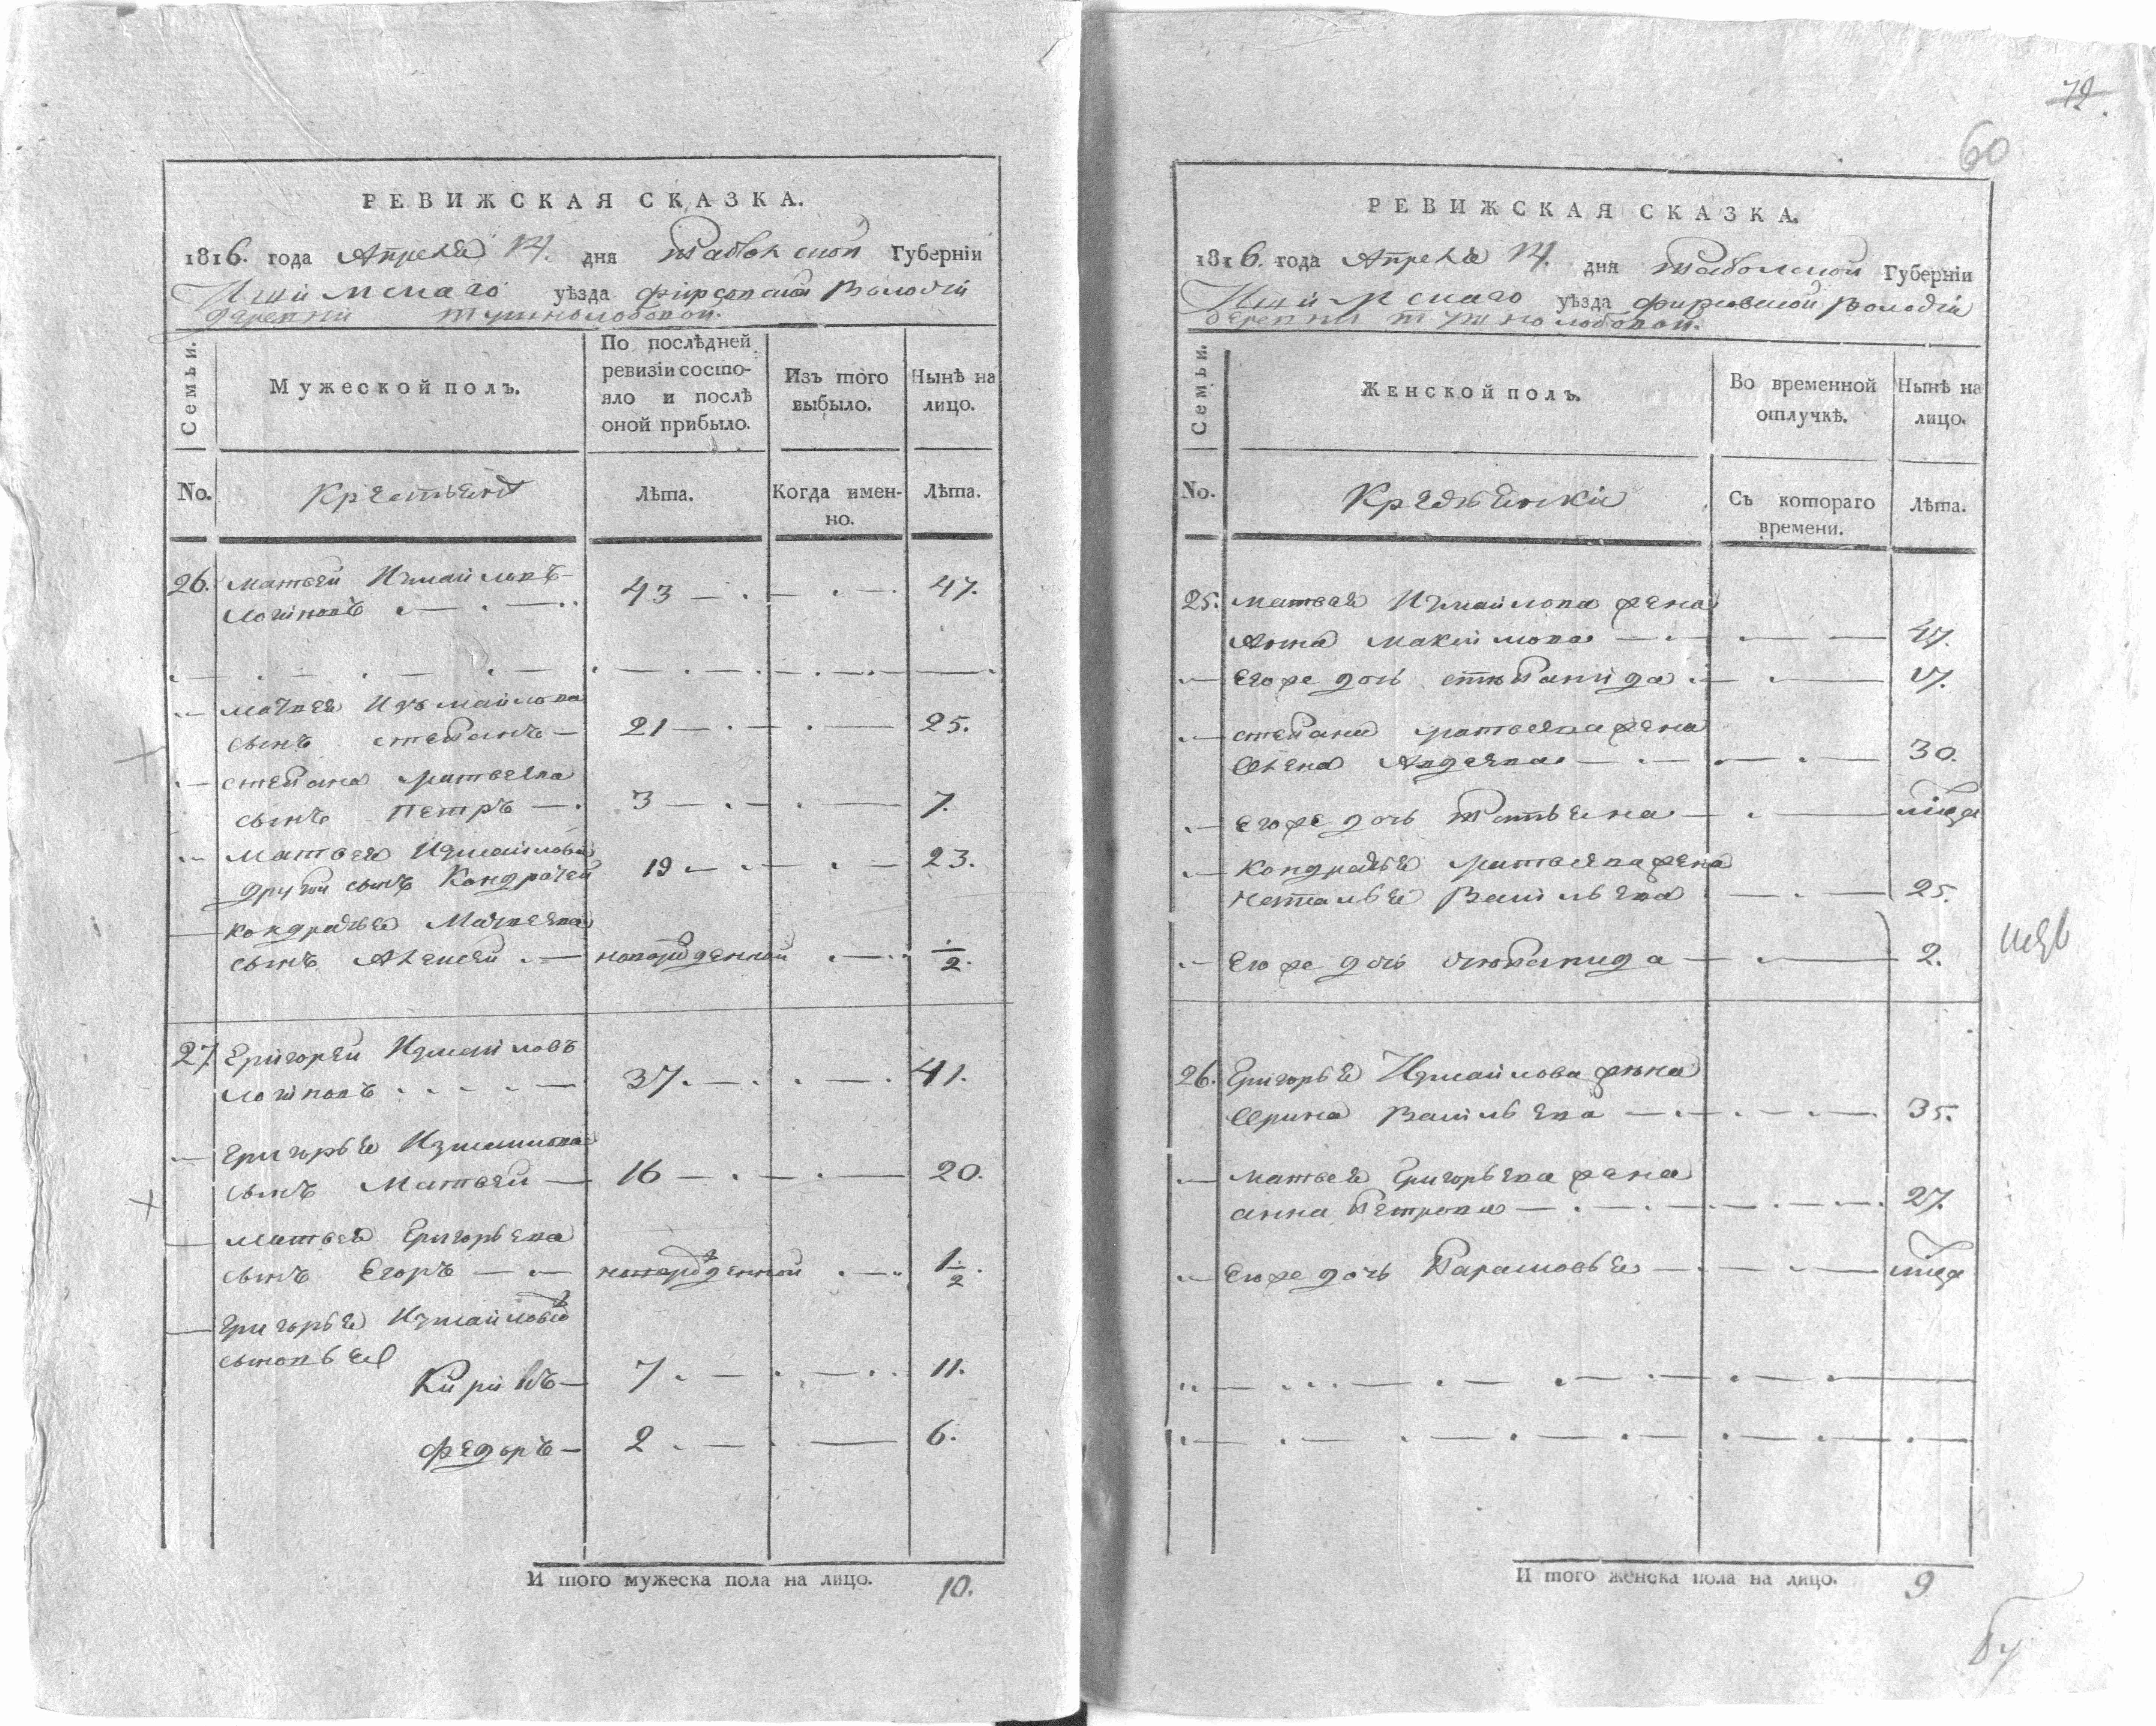 РЕВИЖСКАЯ СКАЗКА.
1816. года Апреля 14. дня Таболской Губерніи
Ишимскаго уѣзда фирсовской волости
деревни тушнолобовой.
Семьи.
Мужеской полъ.
По послѣдней ревизіи состояло и послѣ оной прибыло.
Изъ того выбыло.
Нынѣ на лицо.
No.
Крестьяня
Лѣта.
Когда именно.
Лѣта.
26. Матвей Измайловъ
Логиновъ 43 47.
Матвея Измайлова
сынъ степанъ 21 25.
степана Матвеева
сынъ Петръ 3 7.
Матвея Измайлова
другой сынъ Кондратей 19 23.
Кондратья Матвеева
сынъ Алексей новорожденной 1/2.
27. Григорей Измайловъ
Логиновъ 37. 41.
Григорья Измайлова
сынъ Матвей 16 20.
Матвея Григорьева
сынъ Егоръ новорожденной 1 1/2.
Григорья Измайлова
сыновья
Кирилъ 7 11.
Федоръ 2 6.
И того мужеска пола на лицо. 10.
72.
60
РЕВИЖСКАЯ СКАЗКА.
1816. года Апреля 14. дня Таболской Губерніи
Ишимскаго уѣзда фирсовской волости
деревни тушнолобовой.
Семьи.
Женской полъ.
Во временной отлучкѣ.
Нынѣ на лицо.
No.
Крестьянки
Съ котораго времени.
Лѣта.
25. Матвея Измайлова жена
Анна Максимова 47.
Егоже дочь степанида 17.
степана Матвеева жена
Елена Авдеева 30.
Егоже дочь Татьяна
Кондратья Матвеева жена
Наталья Васильева 25.
Егоже дочь степанида 2.
26. Григорья Измайлова жена
Арина Васильева 35.
Матвея Григорьева жена
анна Петрова 27.
Егоже дочь Парасковья
И того женска пола на лицо. 9